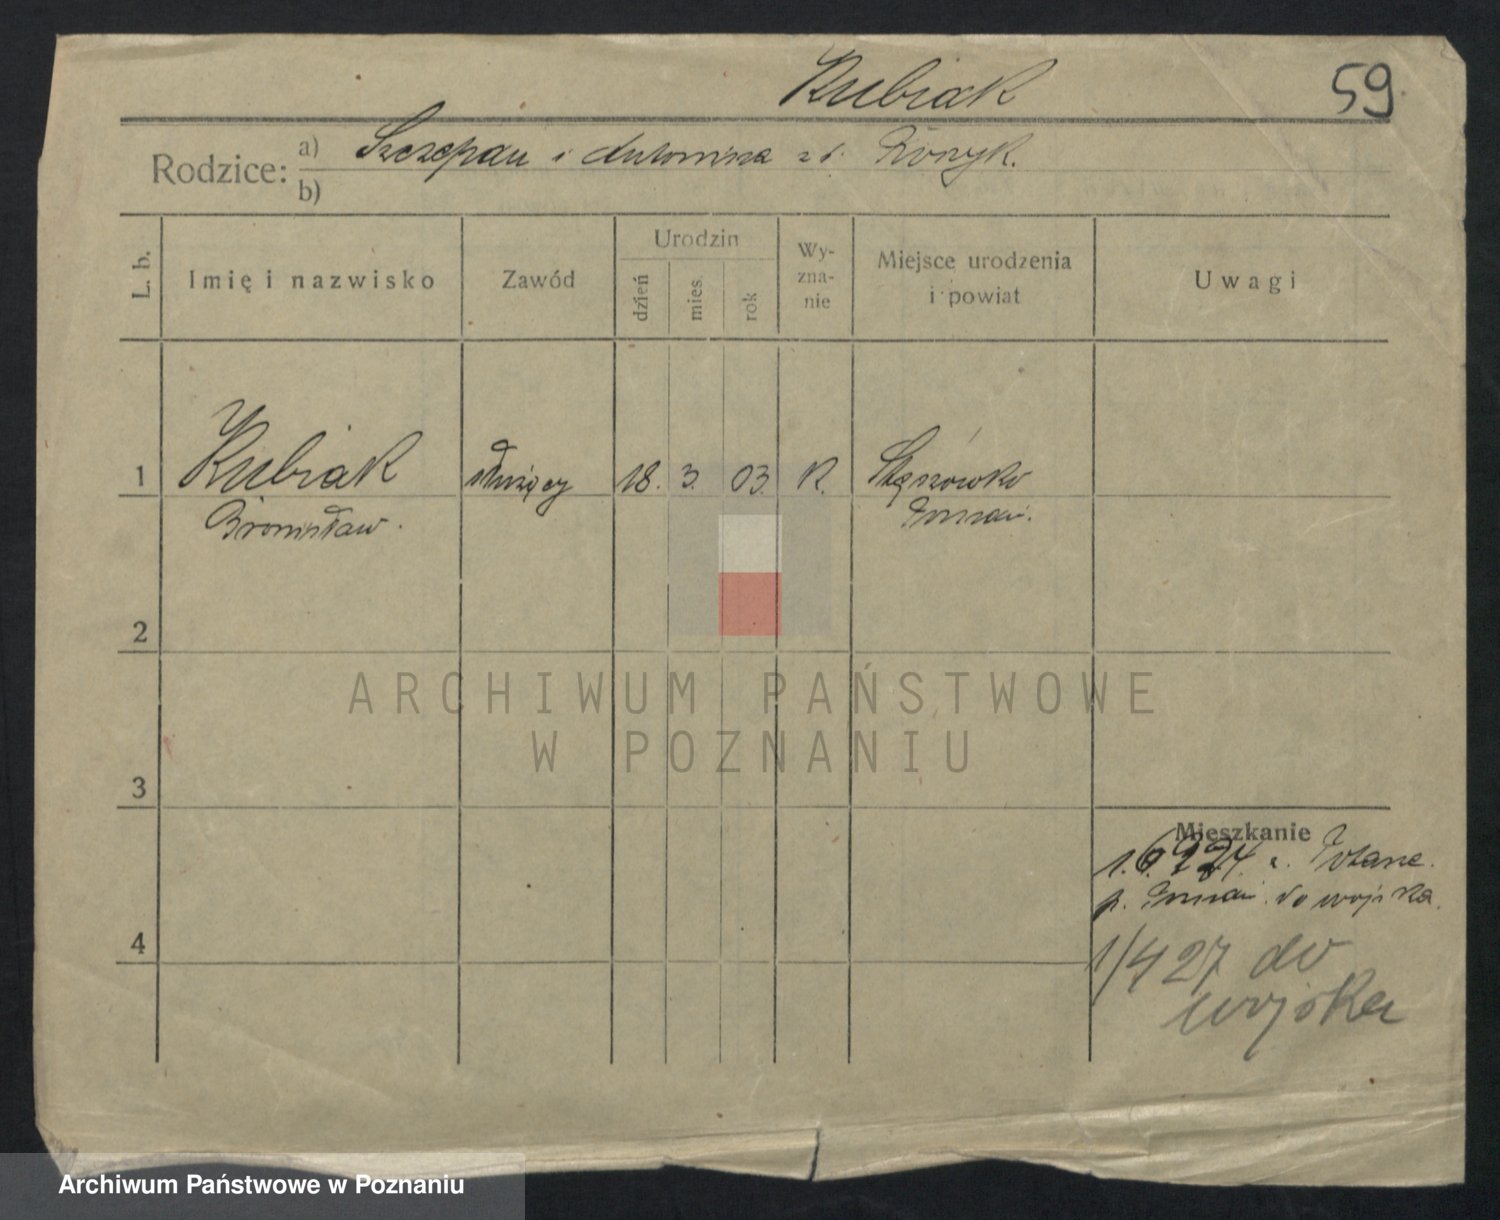 Kubiak
59.
Rodzice:
a) Szczepan i Antonina z d.
b)
L. b.
Imię i nazwisko
Zawód
Urodzin
dzień
mies.
rok
Wy-
zna-
nie
Miejsce urodzenia
i powiat
Uwagi
1
Kubiak
Bronisław.
służący
18.
3.
03.
K.
Poznań.
2
3
4
Mieszkanie
p. Poznań. do wojska.
1/4 27 do
wojska
ARCHIWUM PAŃSTWOWE
W POZNANIU
Archiwum Państwowe w Poznaniu